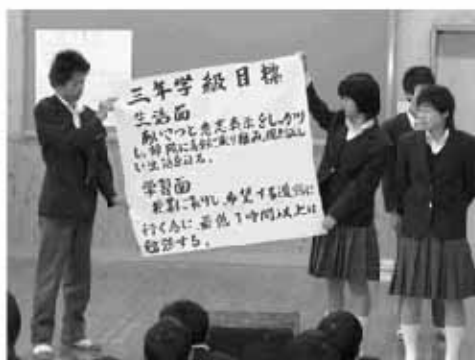 三年学級目標
生活面
あいさつと意志表示をしっかり
し、時間に
い生活を送る。
学習面
授業に集中し、希望する進路に
行く為に、最低1時間以上は
勉強する。